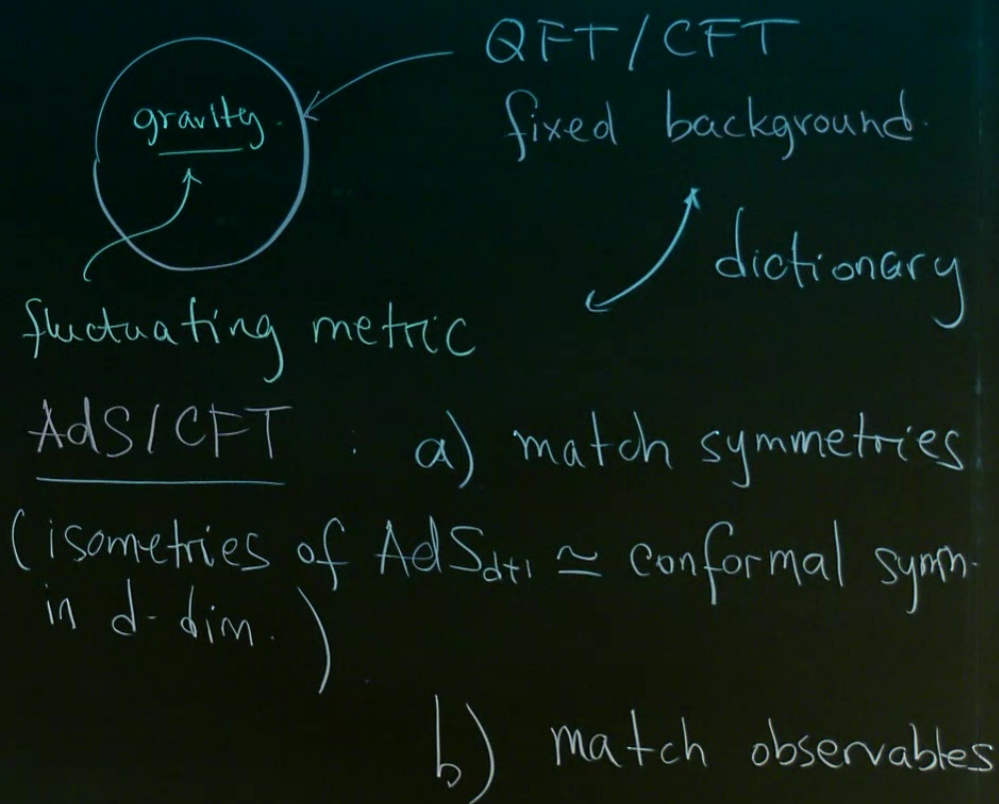 QFT/CFT
gravity.
fixed background.
dictionary
fluctuating metric
AdS/CFT : a) match symmetries
(isometries of AdS_{d+1} ≃ conformal symm.
in d-dim.)
b) match observables